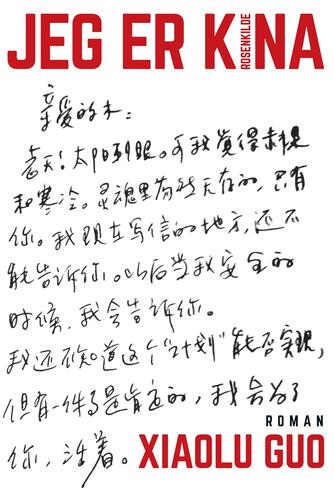 JEG ER KINA
ROSENKILDE
亲爱的木:
春天!太阳刺眼。可我觉得赤裸
和寒冷。灵魂里的,只有
你。我现在写信的地方,还不
能告诉你。以后当我安全的
时候,我会告诉你。
我还不知道这个“计划”能否实现,
但有一件事是肯定的,我会为了
你,活着。
ROMAN
XIAOLU GUO